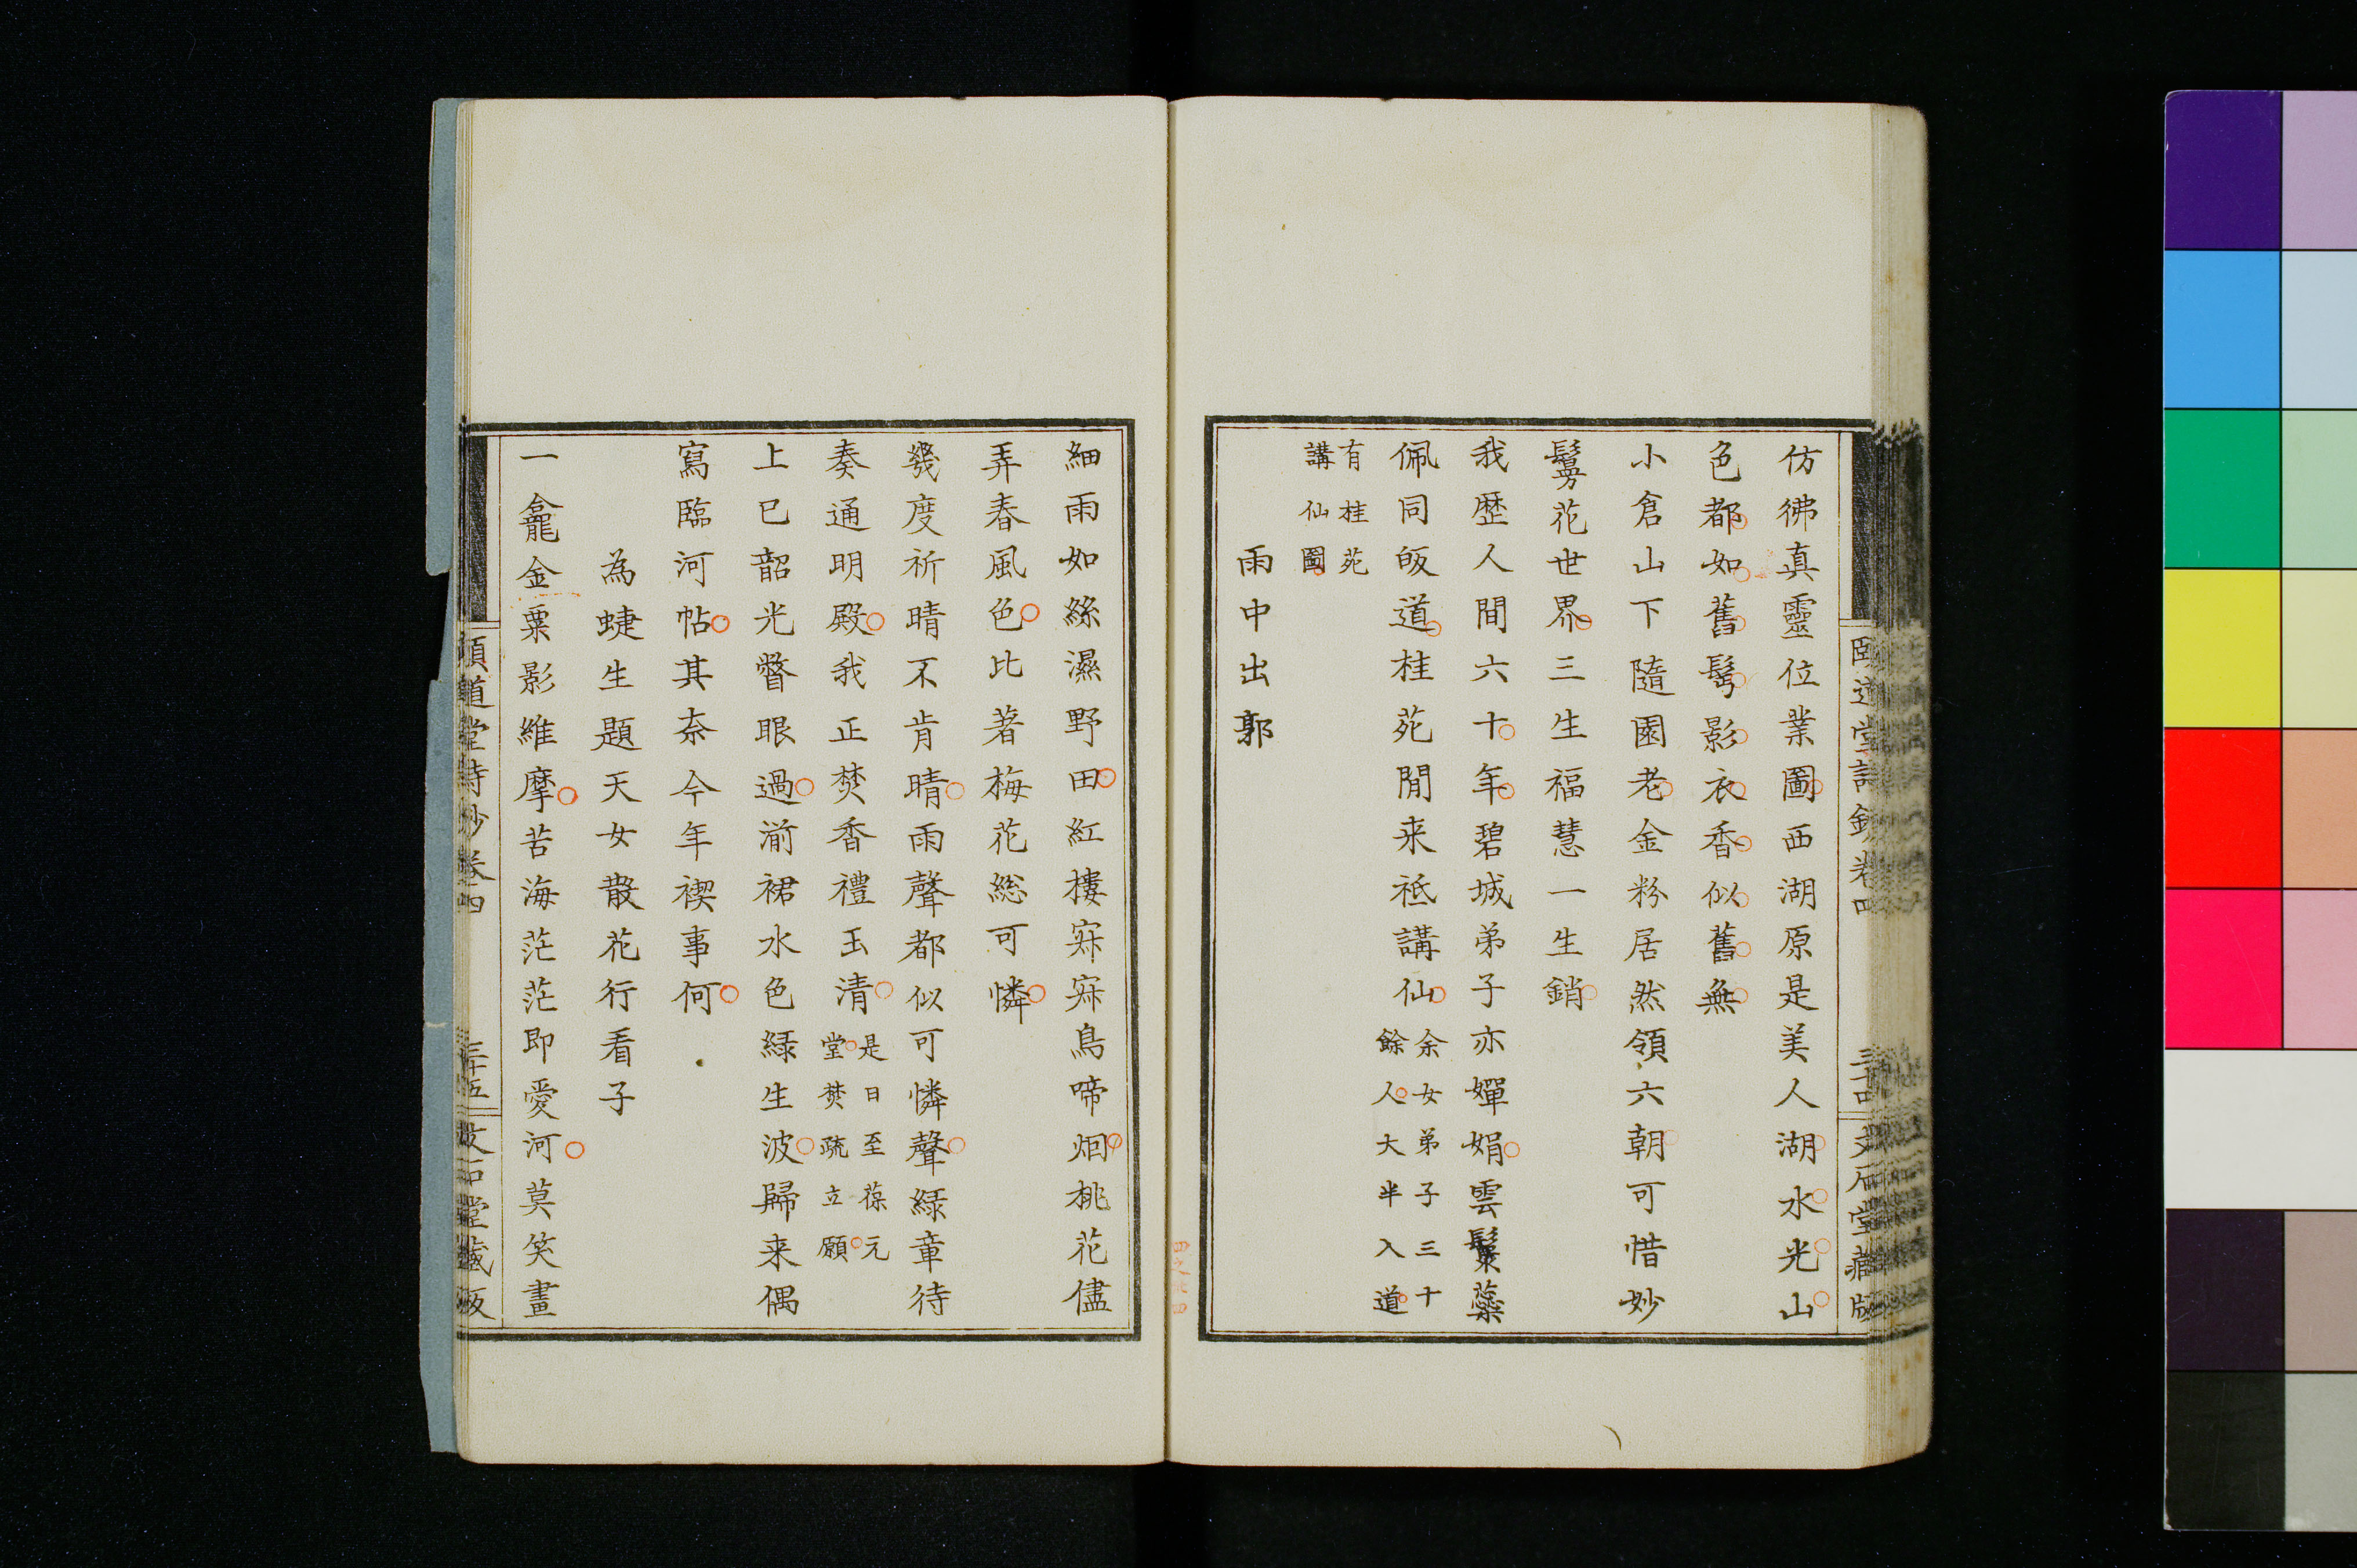 仿彿真靈位業圖西湖原是美人湖水光山
色都如舊鬢影衣香似舊無
小倉山下隨園老金粉居然領六朝可惜妙
鬘花世界三生福慧一生銷
我歷人間六十年碧城弟子亦嬋娟雲鬟藥
佩同皈道桂苑閒来祗講仙余女弟子三十
餘人大半入道
有桂苑
講仙圖
雨中出郭
細雨如絲濕野田紅樓寂寂鳥啼烟桃花儘
弄春風色比著梅花総可憐
幾度祈晴不肯晴雨聲都似可憐聲緑章待
奏通明殿我正焚香禮玉清是日至葆元
堂焚疏立願
上巳韶光瞥眼過湔裙水色緑生波歸来偶
寫臨河帖其奈今年禊事何
為蜨生題天女散花行看子
一龕金粟影維摩苦海茫茫即愛河莫笑畫
頤道堂詩鈔卷四
三十五
文石堂藏板